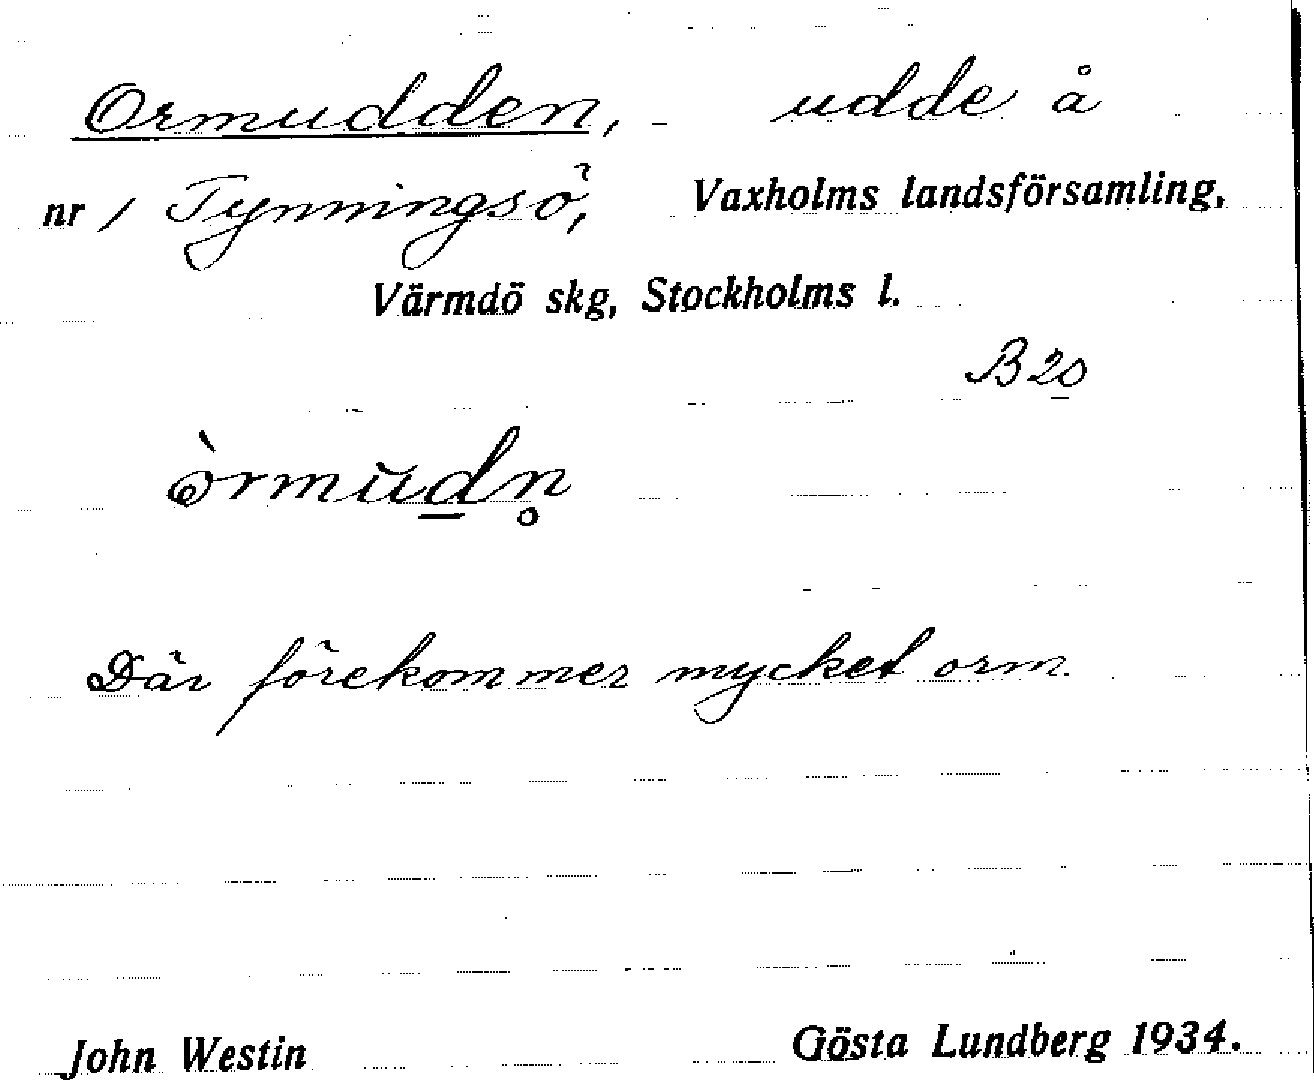 Ormudden, udde å
nr 1 Tynningsö, Vaxholms landsförsamling,
Värmdö skg, Stockholms l.
B 20
òrmud̲n̥
Där förekommer mycket orm.
John Westin Gösta Lundberg 1934.